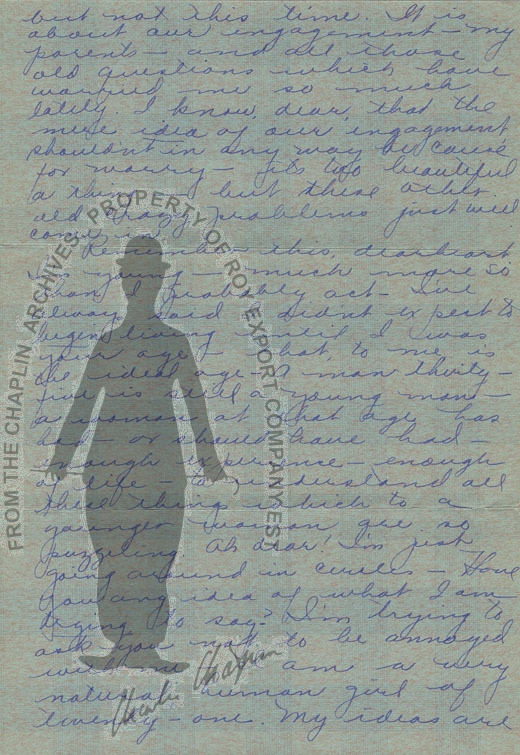 but not this time. It is
about our engagement - my
parents - and all those
old questions which have
worried me so much
lately. I know, dear, that the
mere idea of our engagement
shouldn't in any way be cause
for worry - its too beautiful
a thing - but these other
old crazy problems just will
come in.
Remember this, dearheart
I'm young - much more so
than I probably act - I've
always said I didn't expect to
begin living until I was
your age - that, to me is
the ideal age. A man thirty-
five is still a young man -
a woman at that age has
had - or should have had -
enough experience - enough
of life - to understand all
these things which to a
younger woman are so
puzzeling. Oh dear! I'm just
going around in circles - Have
you any idea of what I am
trying to say? I'm trying to
ask you not to be annoyed
with me. I am a very
natural human girl of
twenty-one. My ideas are
FROM THE CHAPLIN ARCHIVES. PROPERTY OF ROY EXPORT COMPANY EST
Charlie Chaplin